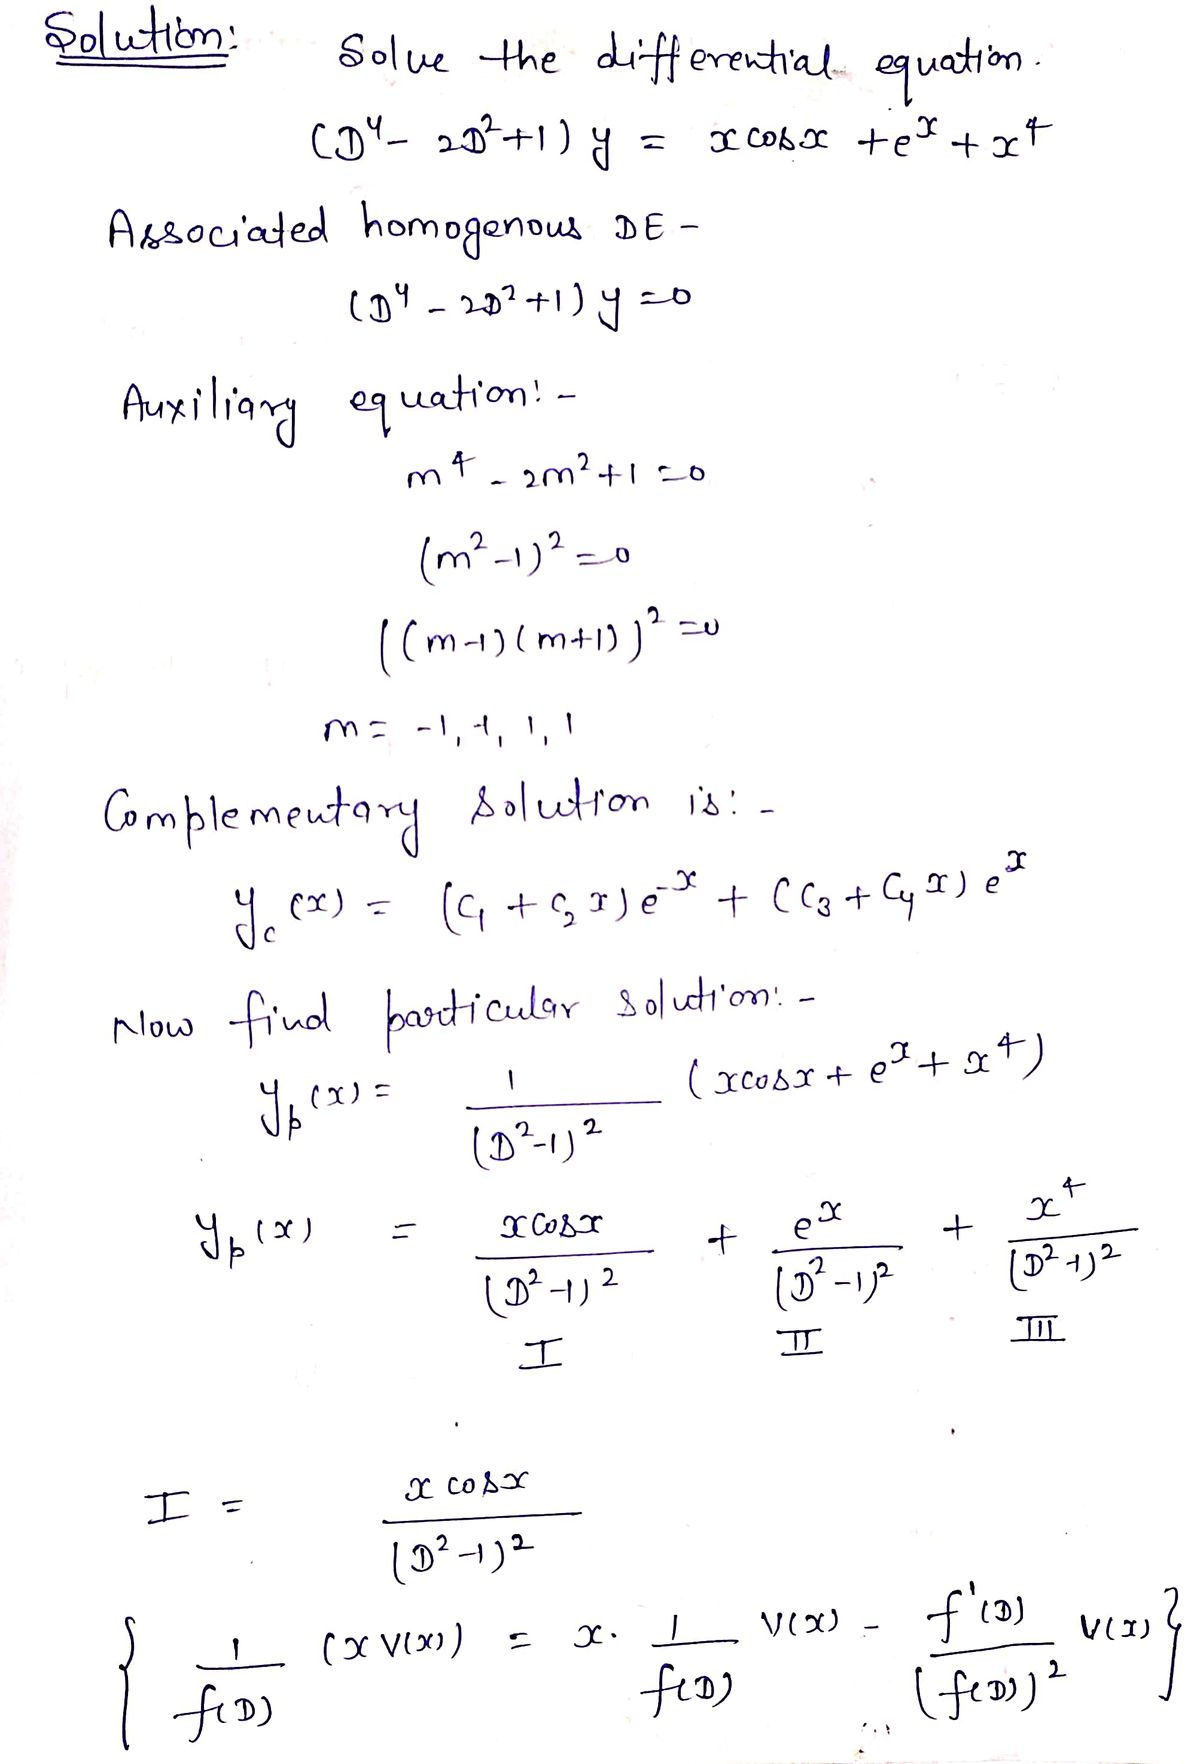 Solution: Solve the differential equation.
(D⁴ - 2D² + 1) y = x cosx + eˣ + x⁴
Associated homogenous DE -
(D⁴ - 2D² + 1) y = 0
Auxiliary equation: -
m⁴ - 2m² + 1 = 0
(m² - 1)² = 0
((m-1)(m+1))² = 0
m = -1, -1, 1, 1
Complementary solution is: -
y_c(x) = (C₁ + C₂ x) e⁻ˣ + (C₃ + C₄ x) eˣ
Now find particular solution: -
y_p(x) = 1/(D²-1)² (xcosx + eˣ + x⁴)
y_p(x) = xcosx/(D²-1)² + eˣ/(D²-1)² + x⁴/(D²-1)²
I II III
I = x cosx/(D²-1)²
{ 1/f(D) (x V(x)) = x. 1/f(D) V(x) - f'(D)/(f(D))² V(x) }